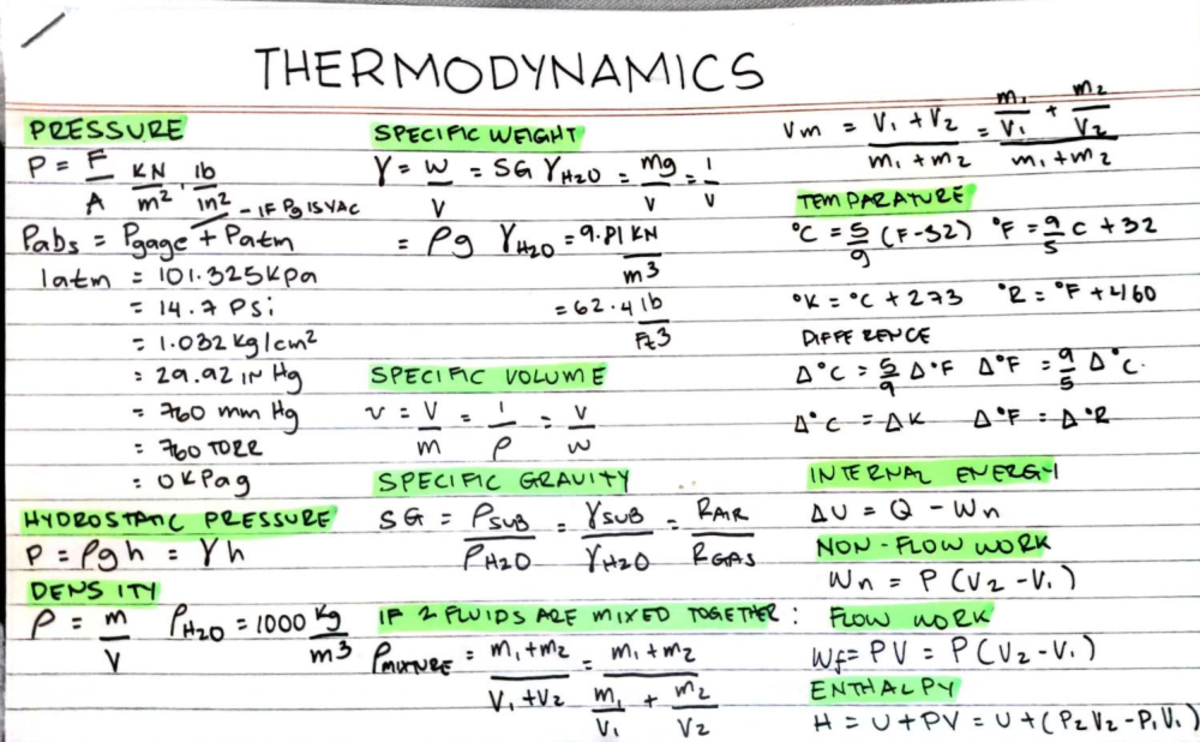 THERMODYNAMICS
PRESSURE
P = F/A KN/m², lb/in²
- IF Pg IS VAC
Pabs = Pgage + Patm
1atm = 101.325KPa
= 14.7 Psi
= 1.032 kg/cm²
= 29.92 IN Hg
= 760 mm Hg
= 760 TORR
= 0KPag
HYDROSTATIC PRESSURE
P = ρgh = γh
DENSITY
ρ = m/V ρH2O = 1000 kg/m³
SPECIFIC WEIGHT
γ = W/V = SG γH2O = mg/V = 1/V
= ρg γH2O = 9.81 KN/m³
= 62.4 lb/Ft³
SPECIFIC VOLUME
v = V/m = 1/ρ = V/W
SPECIFIC GRAVITY
SG = ρSUB/ρH2O = γSUB/γH2O = RAIR/RGAS
IF 2 FLUIDS ARE MIXED TOGETHER :
ρMIXTURE = (m1+m2)/(V1+V2) = (m1+m2)/(m1/V1 + m2/V2)
Vm = (V1+V2)/(m1+m2) = (m1/V1 + m2/V2)/(m1+m2)
TEMPARATURE
°C = 5/9 (F-32) °F = 9/5 C +32
°K = °C +273 °R = °F +460
DIFFERENCE
Δ°C = 5/9 Δ°F Δ°F = 9/5 Δ°C.
Δ°C = ΔK Δ°F = Δ°R
INTERNAL ENERGY
ΔU = Q - Wn
NON-FLOW WORK
Wn = P (V2-V1)
FLOW WORK
Wf= PV = P(V2-V1)
ENTHALPY
H = U+PV = U+(P2V2-P1V1)